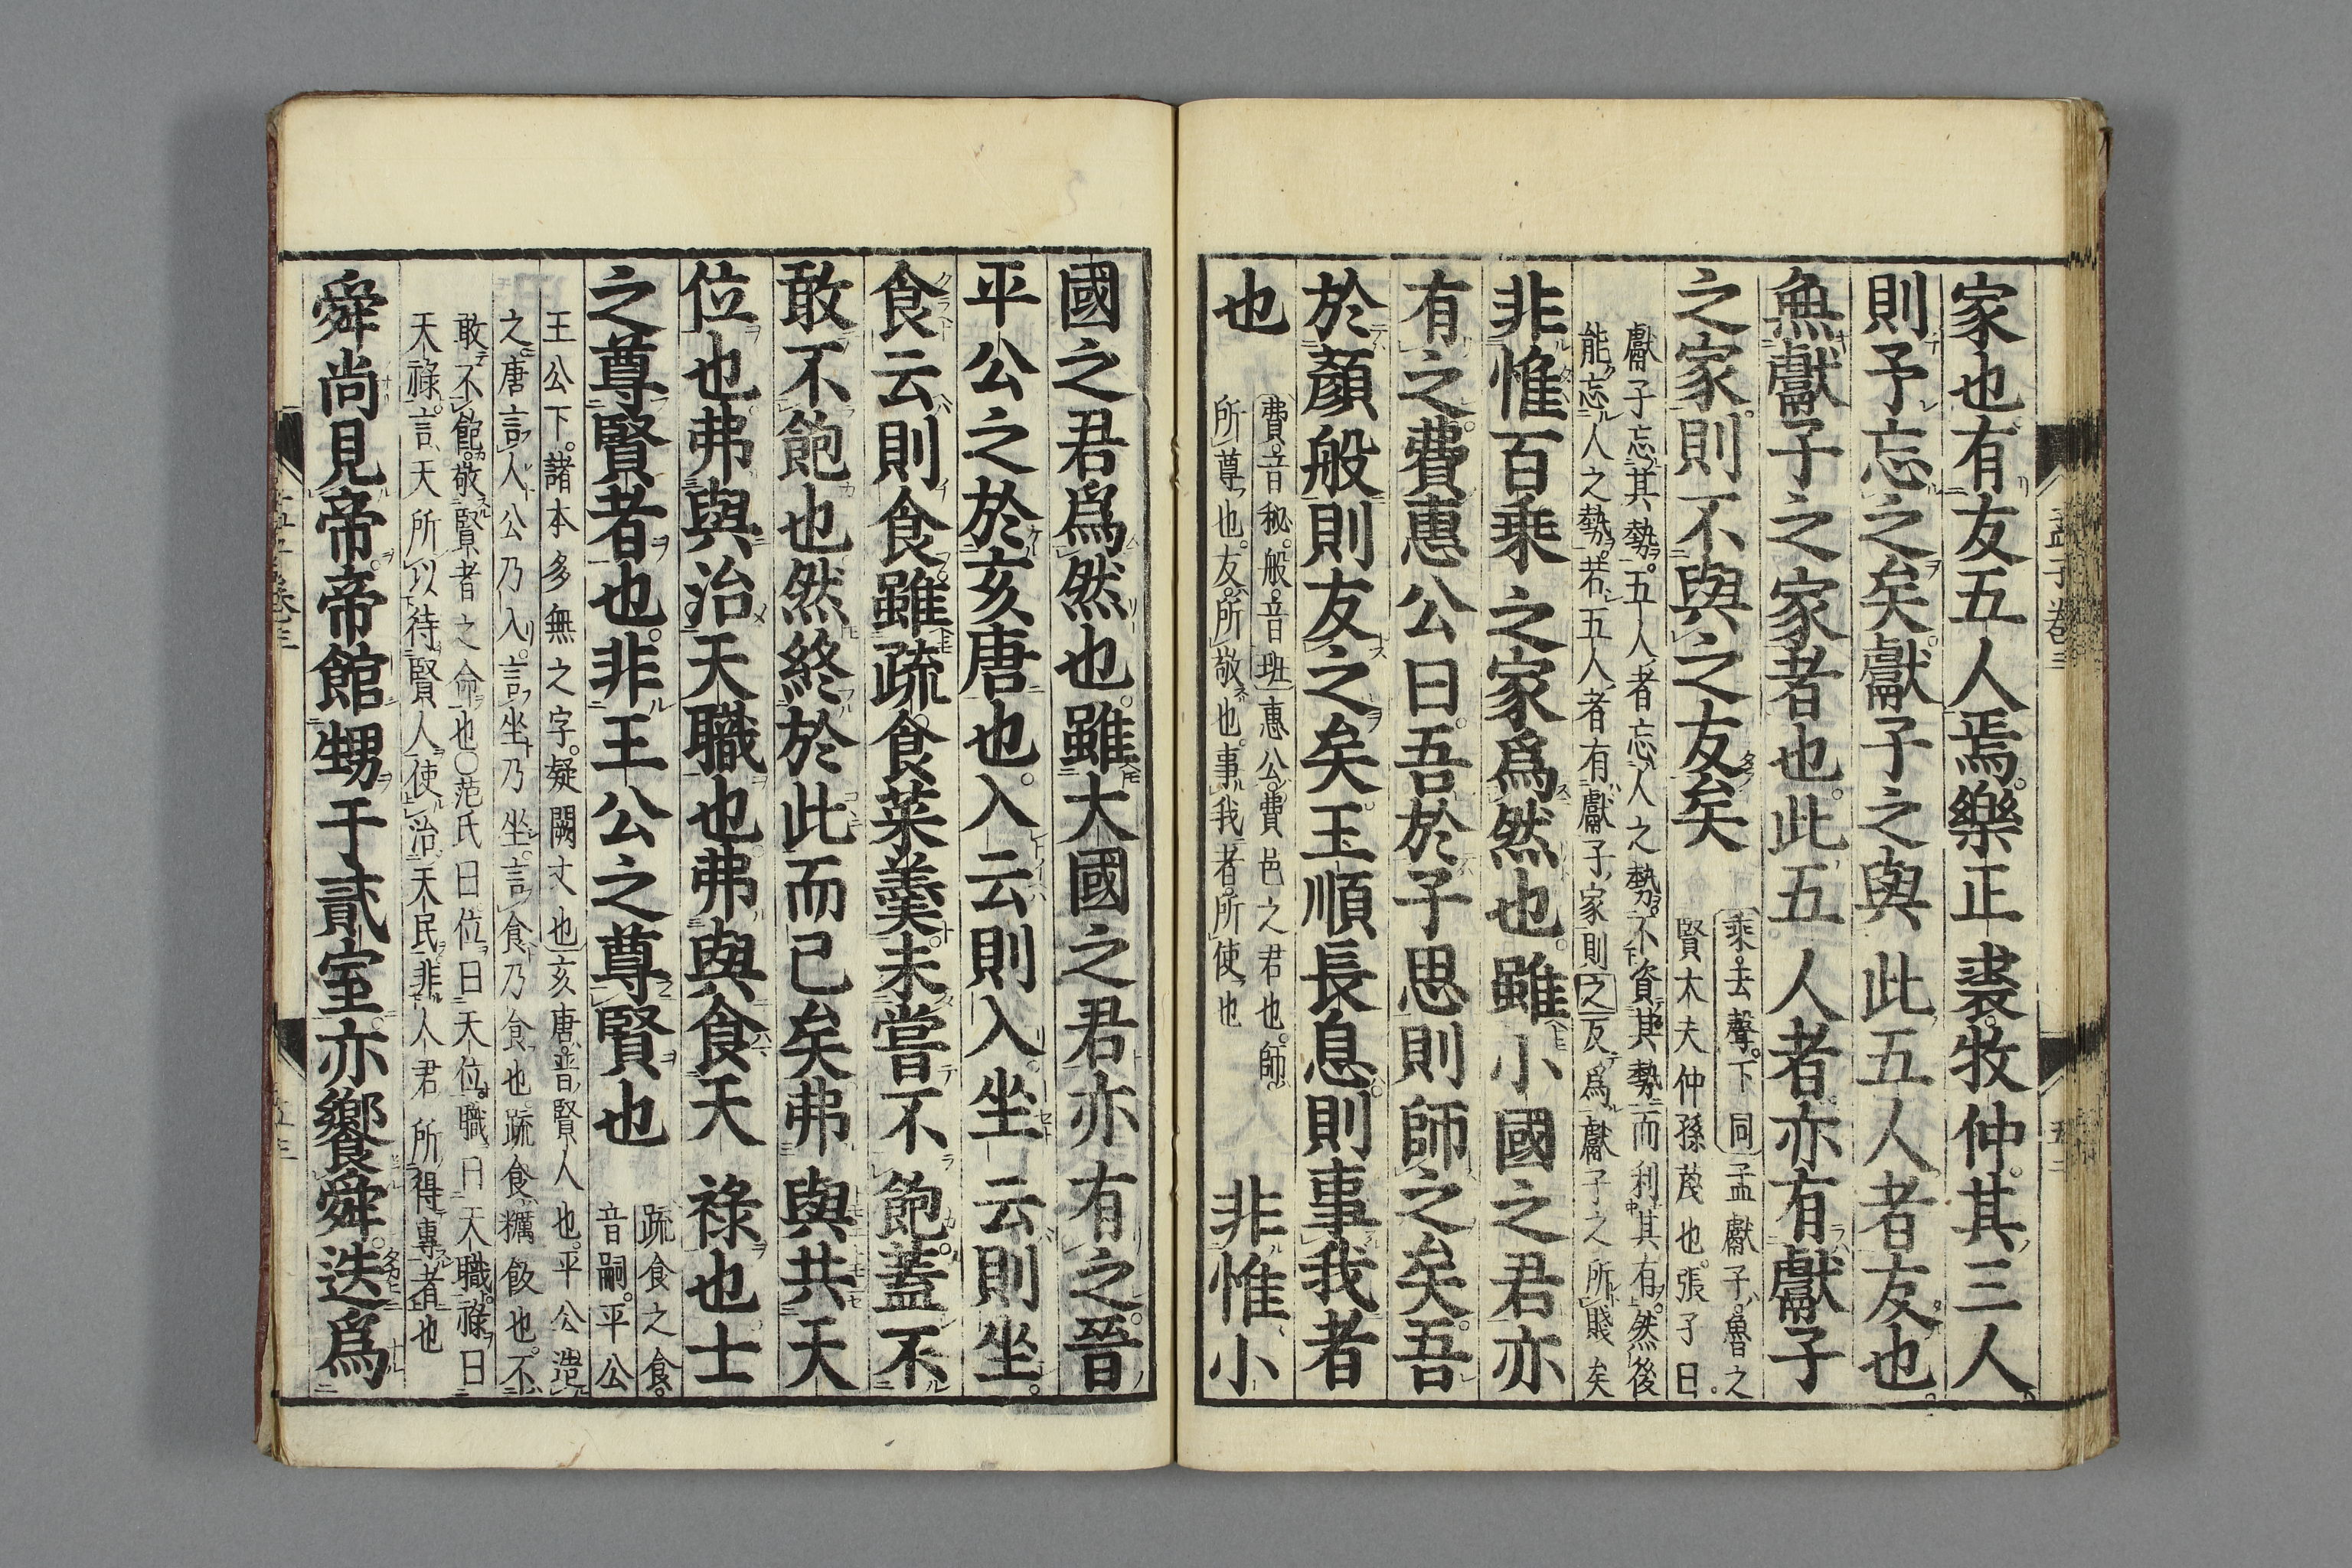 家也有友五人焉樂正裘牧仲其三人
則予忘之矣獻子之與此五人者友也
無獻子之家者也此五人者亦有獻子
之家則不與之友矣
乘去聲下同孟獻子魯之
賢大夫仲孫蔑也張子曰
獻子忘其勢五人者忘人之勢不資其勢而利其有然後
能忘人之勢若五人者有獻子家則之反爲獻子之所賤矣
非惟百乘之家爲然也雖小國之君亦
有之費惠公曰吾於子思則師之矣吾
於顏般則友之矣王順長息則事我者
也
費音秘般音班惠公費邑之君也師
所尊也友所敬也事我者所使也
非惟小
國之君爲然也雖大國之君亦有之晉
平公之於亥唐也入云則入坐云則坐
食云則食雖疏食菜羹未嘗不飽蓋不
敢不飽也然終於此而已矣弗與共天
位也弗與治天職也弗與食天祿也士
之尊賢者也非王公之尊賢也
疏食之食
音嗣平公
王公下諸本多無之字疑闕文也亥唐晉賢人也平公造
之唐言入公乃入言坐乃坐言食乃食也疏食糲飯也不
敢不飽敬賢者之命也○范氏曰位曰天位職曰天職祿曰
天祿言天所以待賢人使治天民非人君所得專者也
舜尚見帝帝館甥于貳室亦饗舜迭爲
孟子卷三